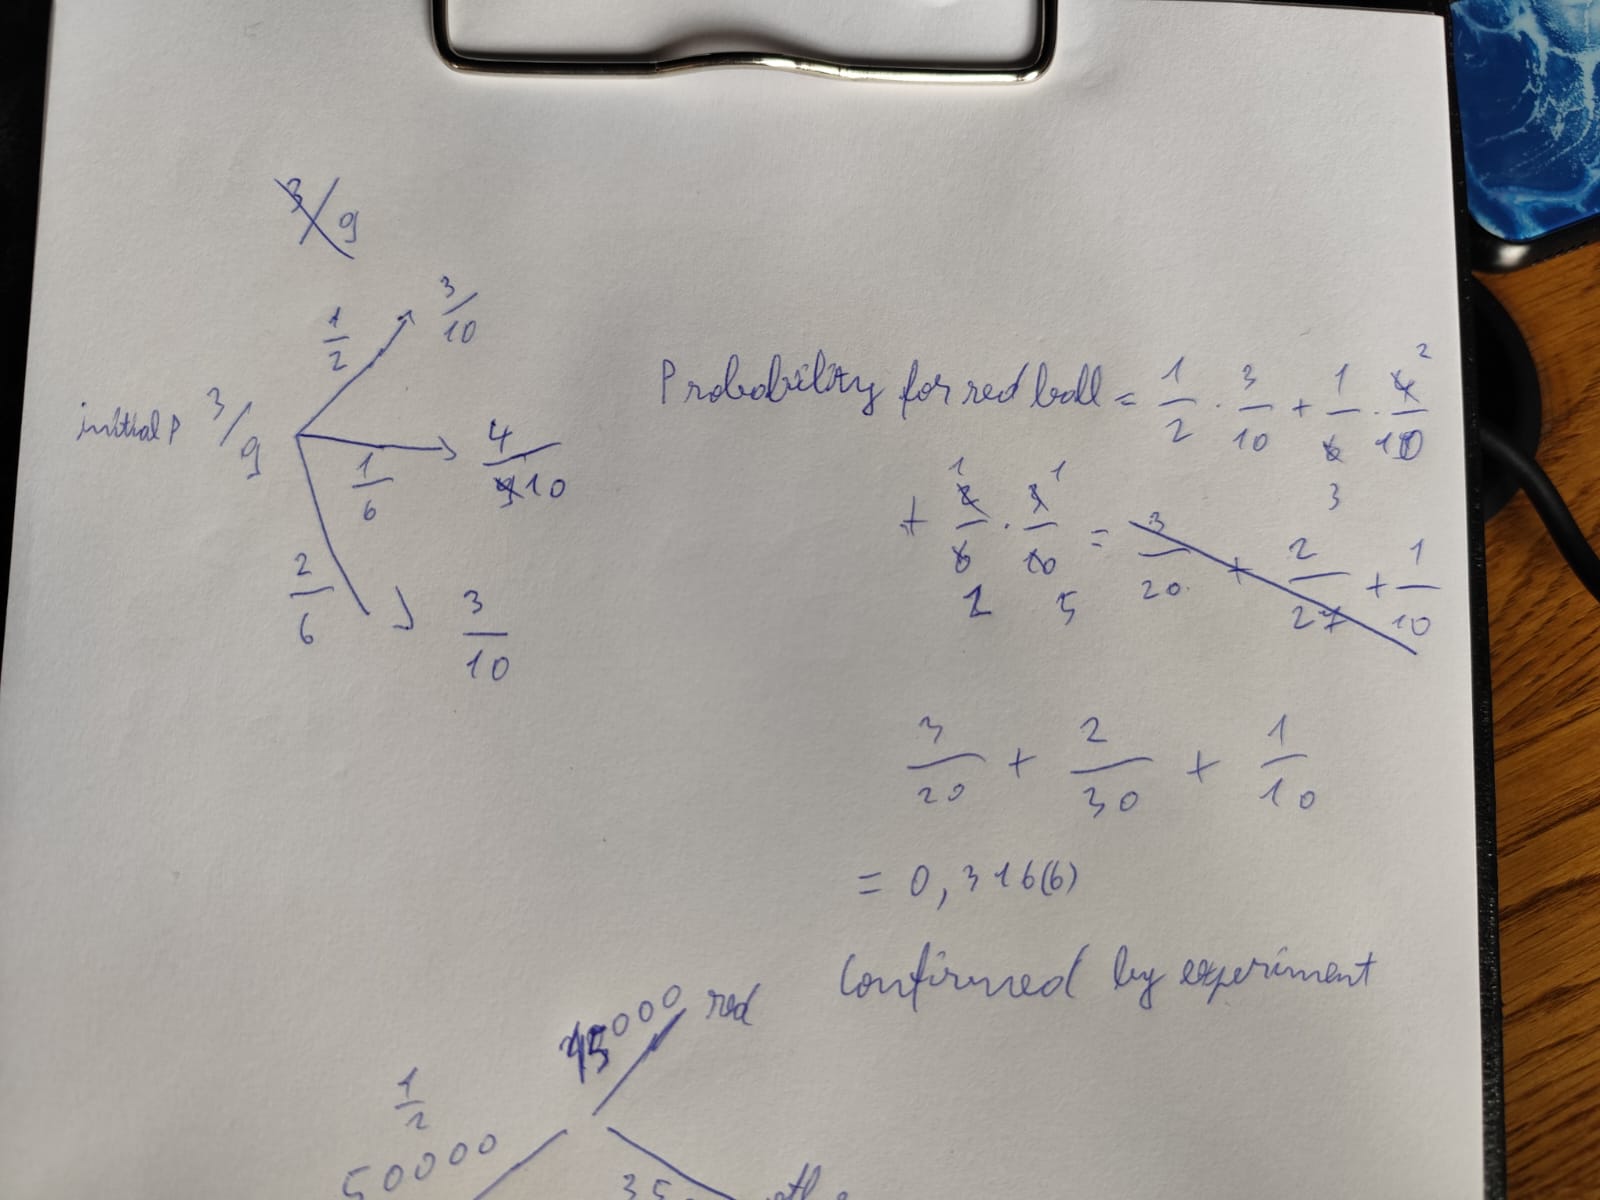 3/9
1/2 3/10
initial P 3/9
1/6 4/10
2/6 3/10
Probability for red ball = 1/2 · 3/10 + 1/6 · 4/10 2
3
+ 2/6 · 3/10 = 3/20 + 2/27 + 1/10
3/20 + 2/30 + 1/10
= 0,316(6)
Confirmed by experiment
15000 red
1/2
50000
35